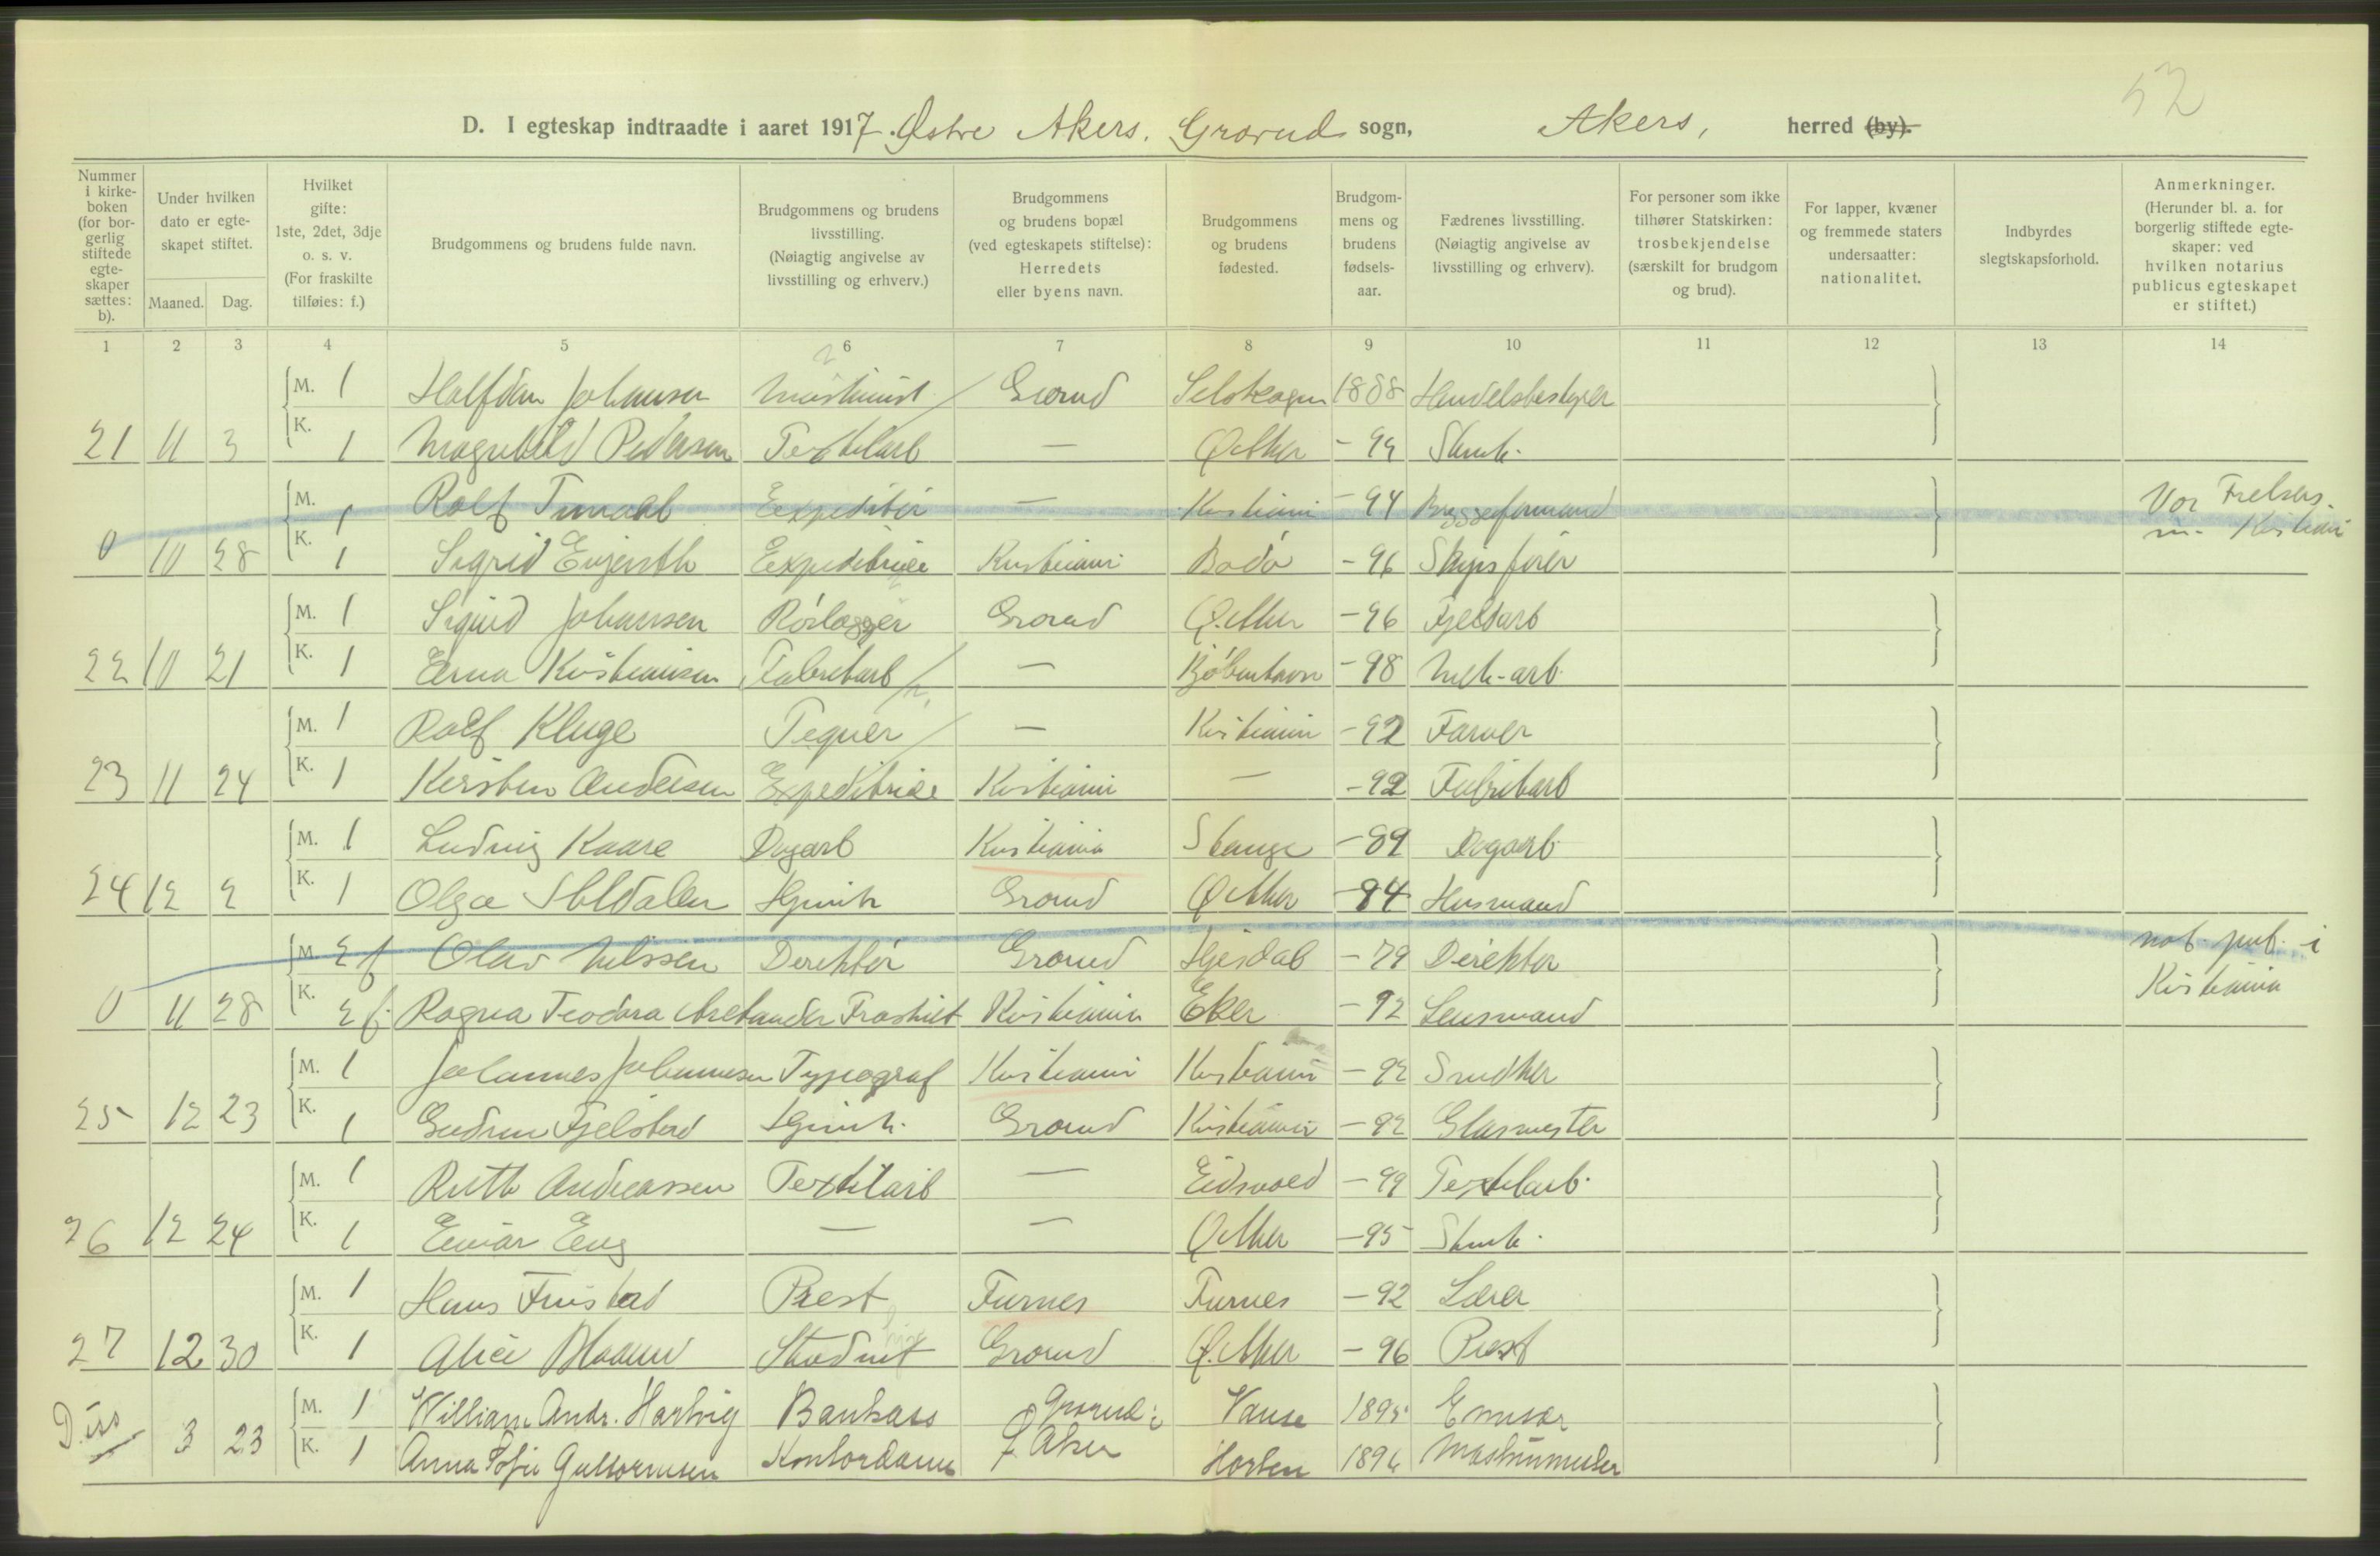 52
D. I egteskap indtraadte i aaret 1917. Østre Akers. Grorud sogn, Akers, herred (by).
Nummer i kirkeboken (for borgerlig stiftede egteskaper sættes: b).
Under hvilken dato er egteskapet stiftet.
Maaned. Dag.
Hvilket gifte: 1ste, 2det, 3dje o. s. v. (For fraskilte tilføies: f.)
Brudgommens og brudens fulde navn.
Brudgommens og brudens livsstilling. (Nøiagtig angivelse av livsstilling og erhverv.)
Brudgommens og brudens bopæl (ved egteskapets stiftelse): Herredets eller byens navn.
Brudgommens og brudens fødested.
Brudgommens og brudens fødselsaar.
Fædrenes livsstilling. (Nøiagtig angivelse av livsstilling og erhverv).
For personer som ikke tilhører Statskirken: trosbekjendelse (særskilt for brudgom og brud).
For lapper, kvæner og fremmede staters undersaatter: nationalitet.
Indbyrdes slegtskapsforhold.
Anmerkninger. (Herunder bl. a. for borgerlig stiftede egteskaper: ved hvilken notarius publicus egteskapet er stiftet.)
1 2 3 4 5 6 7 8 9 10 11 12 13 14
M. 1 Halfdan Johansen Maskinist Grorud 1888 Handelsbestyrer
21 11 3 K. 1 Magnhild Pedersen Textilarb — Ø. Aker - 99 Stenh.
M. 1 Rolf Expeditør — Kristiania - 94 Bryggeformand Vor Frelsers
0 10 28 K. 1 Sigrid Engenth Expeditrice Kristiania Bodø - 96 Skipsfører m. Kristiania
M. 1 Sigurd Johansen Rørlægger Grorud Ø. Aker - 96 Fjeldarb
22 10 21 K. 1 Erna Kristiansen Fabrikarb — Kjøbenhavn - 98 Mek-arb.
M. 1 Rolf Kluge Tegner — Kristiania - 92 Farver
23 11 24 K. 1 Kirsten Andersen Expeditrice Kristiania — - 92 Fabrikarb
M. 1 Ludvig Kaare Dagarb Kristiania Stange - 89 Dagarb.
24 12 2 K. 1 Olga Hjemh Grorud Ø. Aker - 94 Husmand
M. 2 f Olav Nilssen Direktør Grorud Gjesdal - 79 Direktør not. pub. i
0 11 28 K. 2 f. Ragna Teodora Kristiania Eker - 92 Lensmand Kristiania
M. 1 Johannes Johannesen Typograf Kristiania Kristiania - 92 Snedker
25 12 23 K. 1 Gudrun Fjelstad Hjemh. Grorud Kristiania - 92 Glasmester
M. 1 Ruth Andreassen Textilarb — Eidsvold - 99 Textilarb.
26 12 24 K. 1 Einar Eng — — Ø. Aker - 95 Stenh.
M. 1 Hans Prest Furnes Furnes - 92 Lærer
27 12 30 K. 1 Alice Blaauw Student Grorud Ø. Aker - 96 Prest
M. 1 William Andr. Hartvig Bankass Grorud i Vanse 1895
Diss 3 23 K. 1 Anna Sofie Guttormsen Kontordame Ø. Aker Horten 1896 Maskinmester